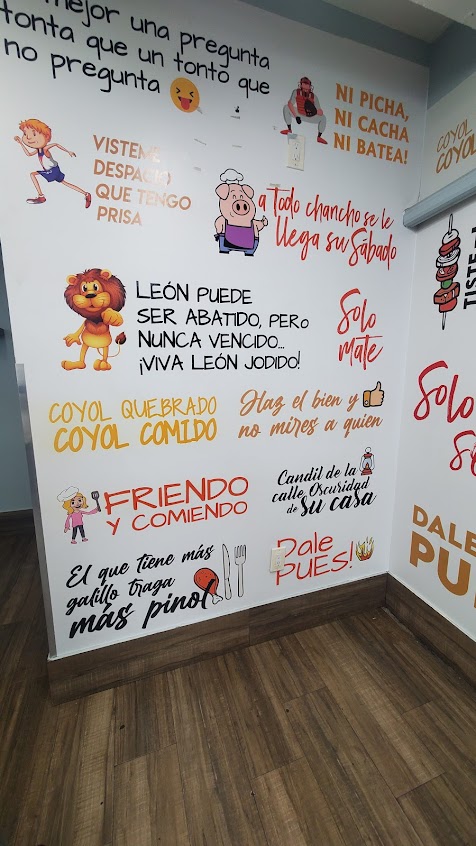 mejor una pregunta
tonta que un tonto que
no pregunta
NI PICHA,
NI CACHA
NI BATEA!
VISTEME
DESPACIO
QUE TENGO
PRISA
a todo chancho se le
llega su Sábado
LEÓN PUEDE
SER ABATIDO, PERO
NUNCA VENCIDO...
¡VIVA LEÓN JODIDO!
Solo
mate
COYOL QUEBRADO
COYOL COMIDO
Haz el bien y
no mires a quien
FRIENDO
Y COMIENDO
Candil de la
calle Oscuridad
de su casa
El que tiene más
galillo traga
más pinol
Dale
PUES!
COYOL
COYOL
TISTE
Solo
DALE
PU